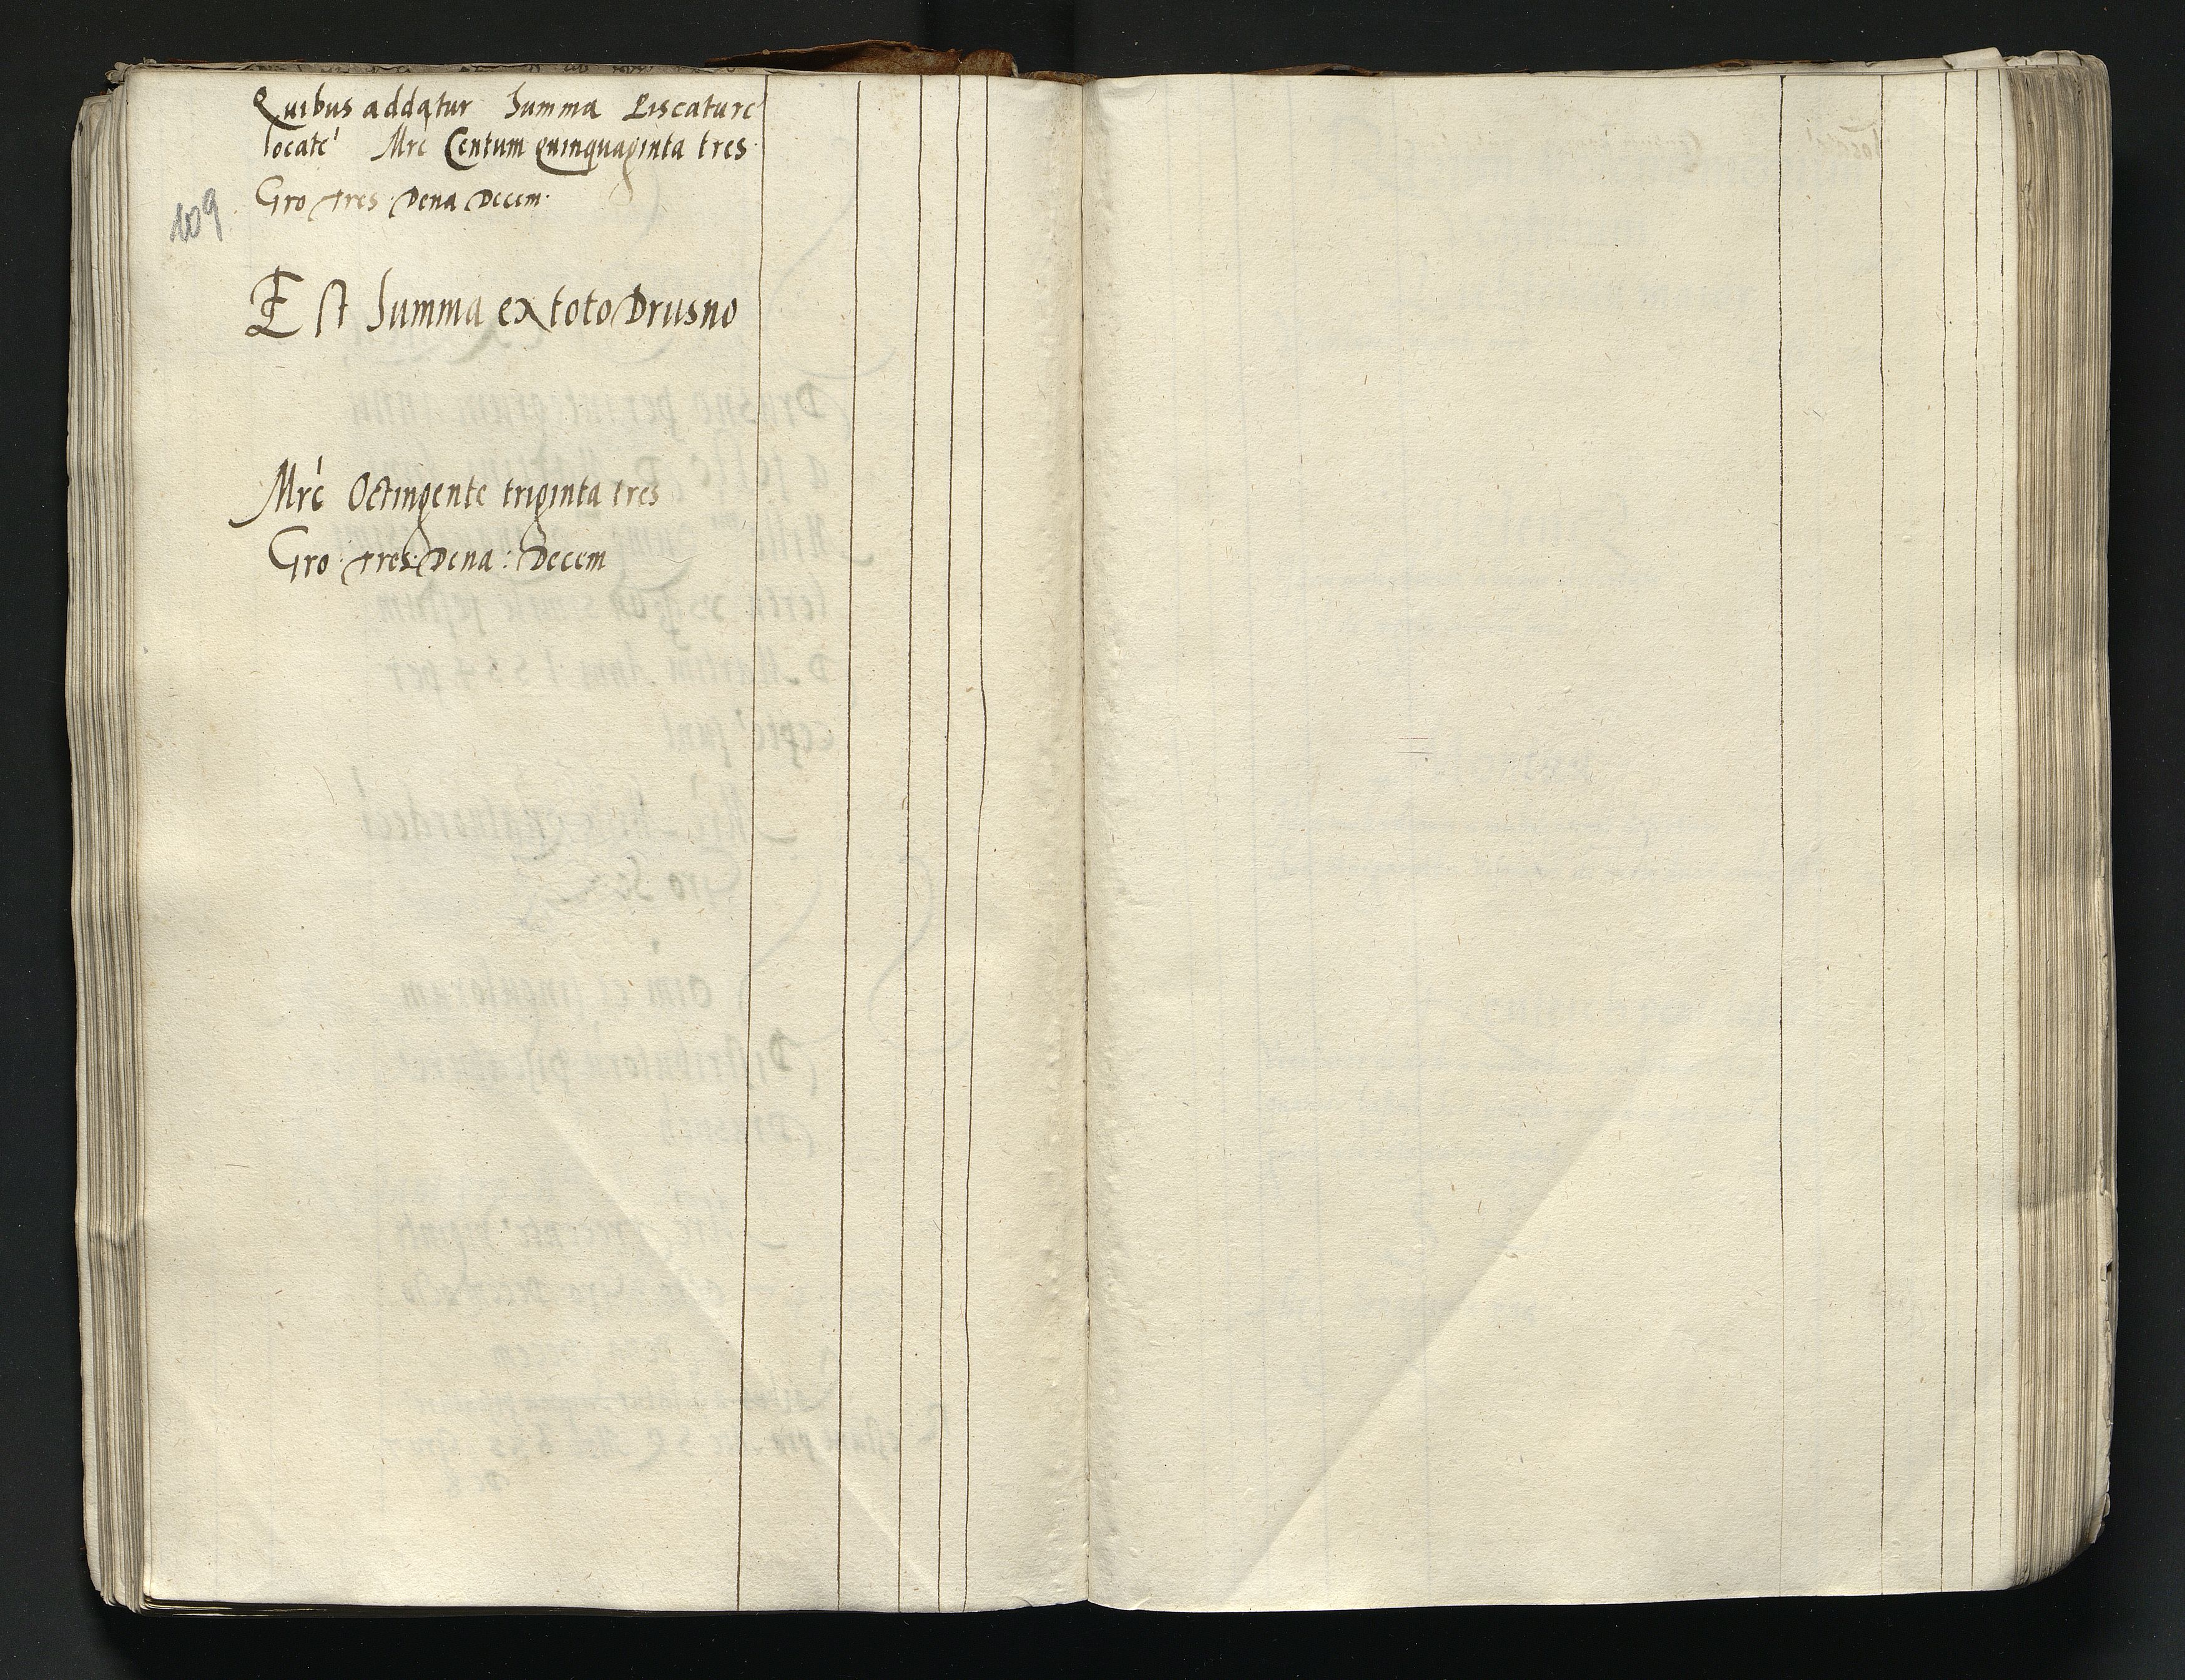 Quibus addatur Summa Piscature
locate' Mrc Centum quinquaginta tres
Gro tres Dena Decem.
109
Est Summa ex toto Drusno
Mrc Octingente triginta tres
Gro tres: Dena: Decem